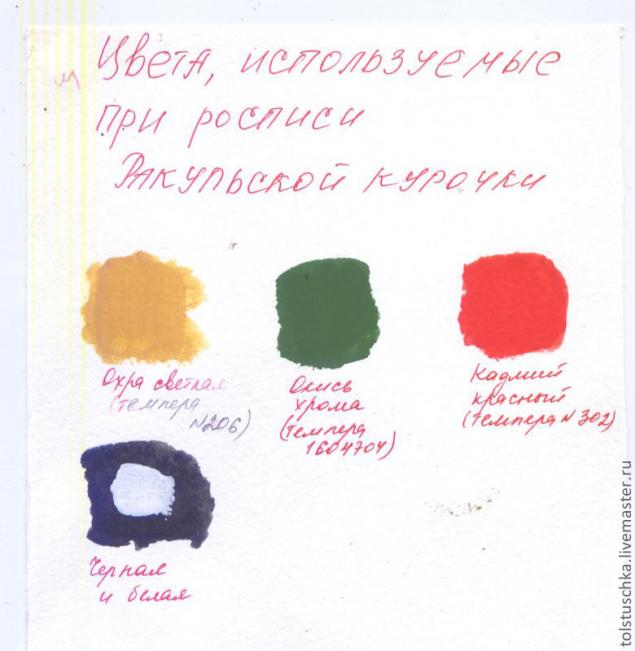 Цвета, используемые
при росписи
Ракульской курочки
Охра светлая
(темпера
N206)
Окись
хрома
(темпера
1604704)
Кадмий
красный
(темпера N 302)
Черная
и белая
tolstuschka.livemaster.ru